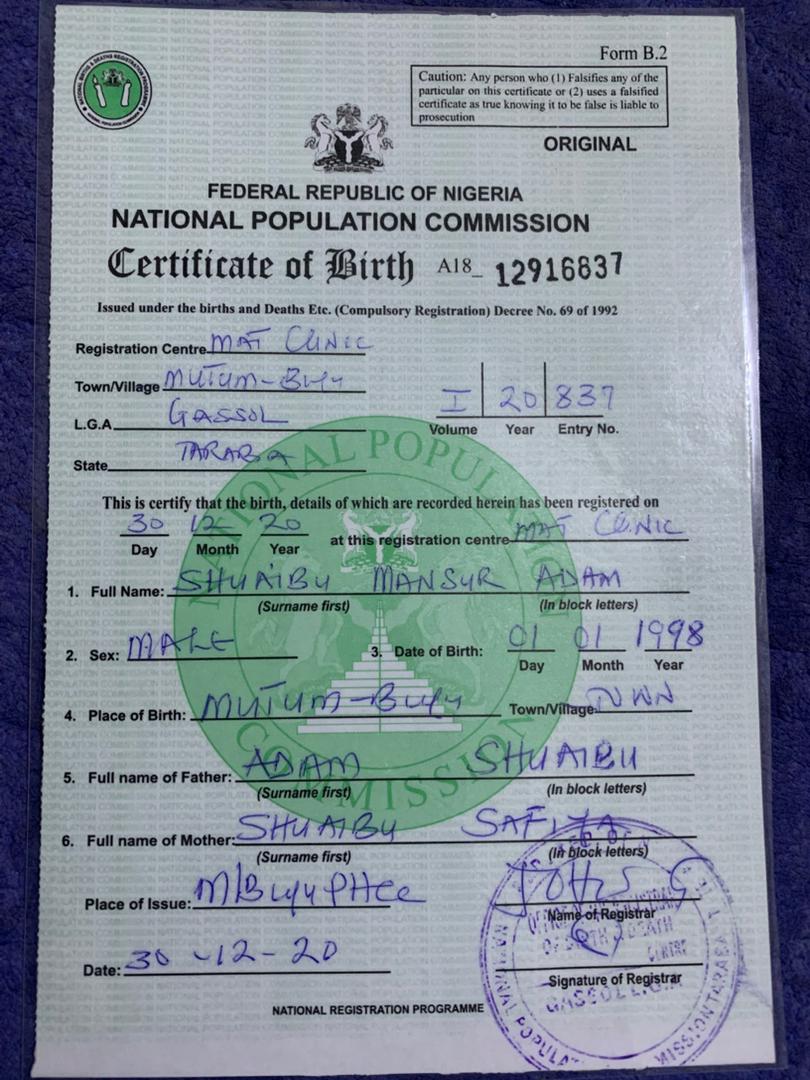 Form B.2
Caution: Any person who (1) Falsifies any of the
particular on this certificate or (2) uses a falsified
certificate as true knowing it to be false is liable to
prosecution
ORIGINAL
FEDERAL REPUBLIC OF NIGERIA
NATIONAL POPULATION COMMISSION
Certificate of Birth A18_ 12916837
Issued under the births and Deaths Etc. (Compulsory Registration) Decree No. 69 of 1992
Registration Centre MAT CLINIC
Town/Village MUTUM-BIYU
L.G.A GASSOL
I 20 837
Volume Year Entry No.
State TARABA
This is certify that the birth, details of which are recorded herein has been registered on
30 12 20 at this registration centre MAT CLINIC
Day Month Year
1. Full Name: SHUAIBU MANSUR ADAM
(Surname first) (In block letters)
2. Sex: MALE 3. Date of Birth: 01 01 1998
Day Month Year
4. Place of Birth: MUTUM-BIYU Town/Village TOWN
5. Full name of Father: ADAM SHUAIBU
(Surname first) (In block letters)
6. Full name of Mother: SHUAIBU SAFIYA
(Surname first) (In block letters)
Place of Issue: M/Biyu PHCC
Name of Registrar
Date: 30-12-20
Signature of Registrar
NATIONAL REGISTRATION PROGRAMME
NATIONAL POPULATION COMMISSION